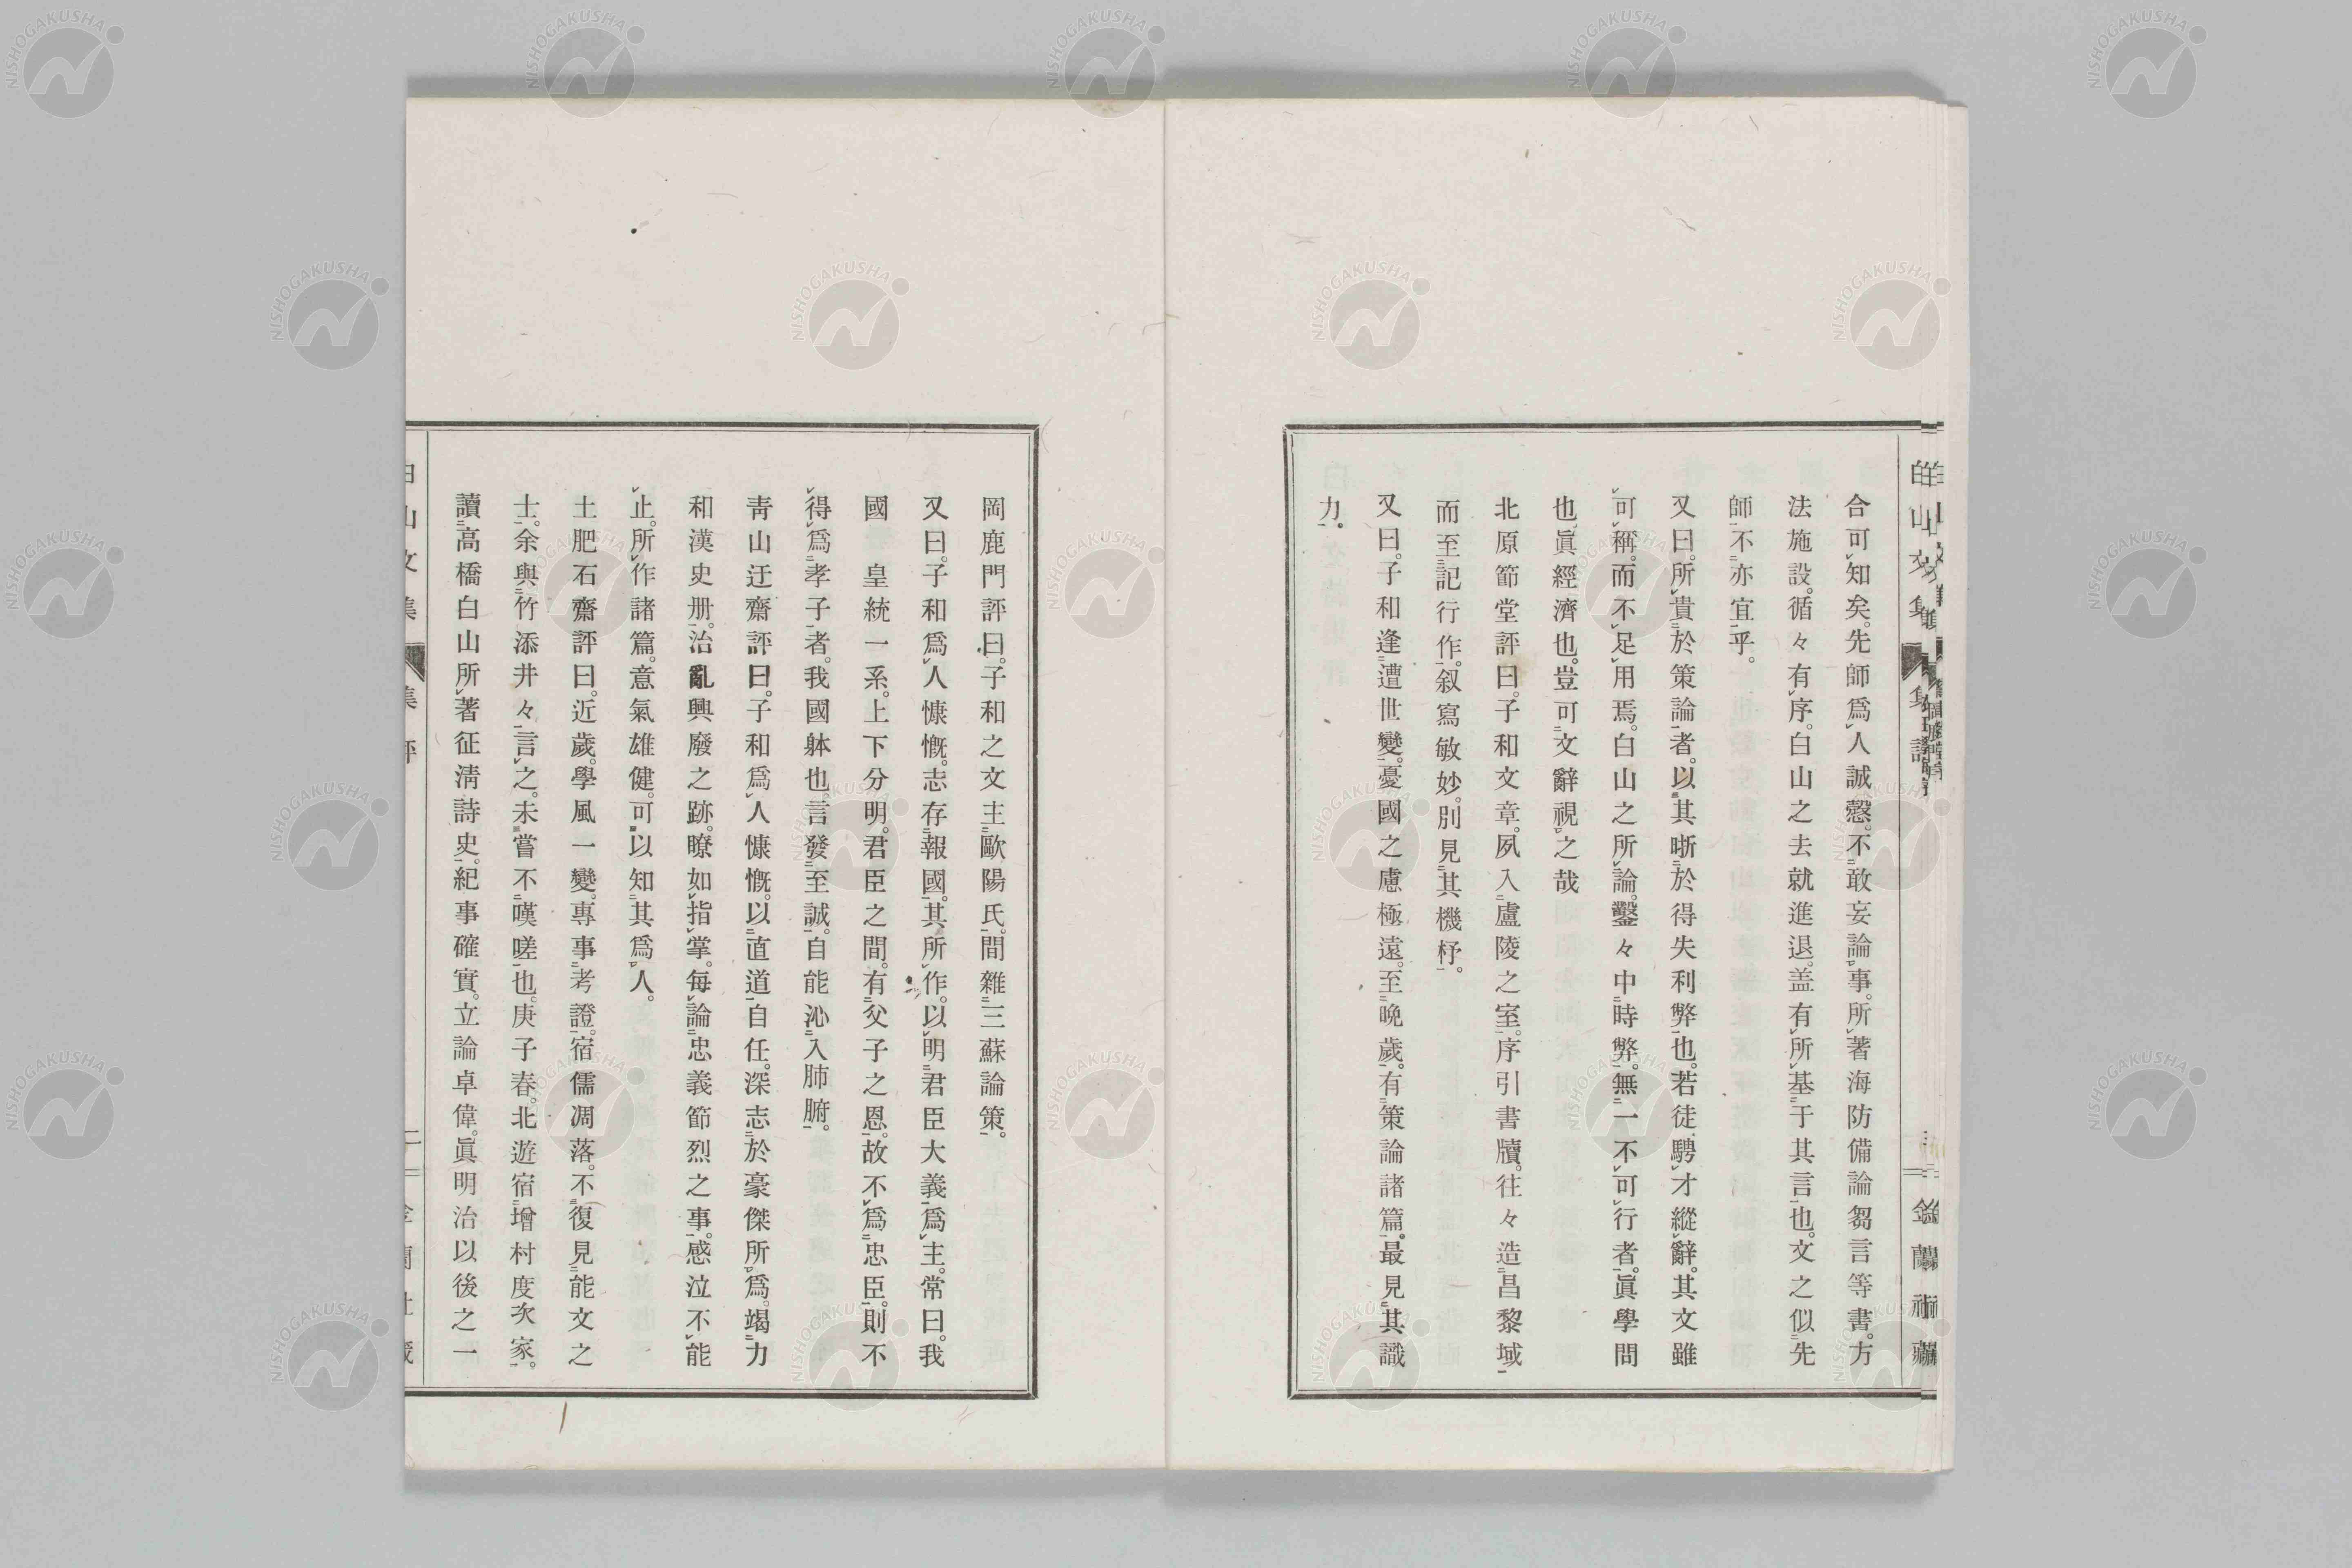 合可知矣。先師爲人誠愨。不敢妄論事。所著海防備論芻言等書。方
法施設。循々有序。白山之去就進退。盖有所基于其言也。文之似先
師不亦宜乎。
又曰。所貴於策論者。以其晰於得失利弊也。若徒騁才縱辭。其文雖
可稱。而不足用焉。白山之所論。鑿々中時弊。無一不可行者。眞學問
也眞經濟也。豈可文辭視之哉
北原節堂評曰。子和文章。夙入盧陵之室。序引書牘。往々造昌黎域
而至記行作。叙寫敏妙。別見其機杼。
又曰。子和逢遭世變。憂國之慮極遠。至晩歲。有策論諸篇。最見其識
力。
岡鹿門評曰。子和之文主歐陽氏。間雜三蘇論策。
又曰。子和爲人慷慨。志存報國。其所作。以明君臣大義爲主。常曰。我
國　皇統一系。上下分明。君臣之間。有父子之恩。故不爲忠臣。則不
得爲孝子者。我國躰也。言發至誠。自能沁入肺腑。
靑山迂齋評曰。子和爲人慷慨。以直道自任。深志於豪傑所爲。竭力
和漢史册。治亂興廢之跡。暸如指掌。每論忠義節烈之事。感泣不能
止。所作諸篇。意氣雄健。可以知其爲人。
土肥石齋評曰。近歲。學風一變。專事考證。宿儒凋落。不復見能文之
士。余與竹添井々言之。未嘗不嘆嗟也。庚子春。北遊宿增村度次家。
讀高橋白山所著征淸詩史。紀事確實。立論卓偉。眞明治以後之一
白山文集　集評
金蘭社藏
NISHOGAKUSHA